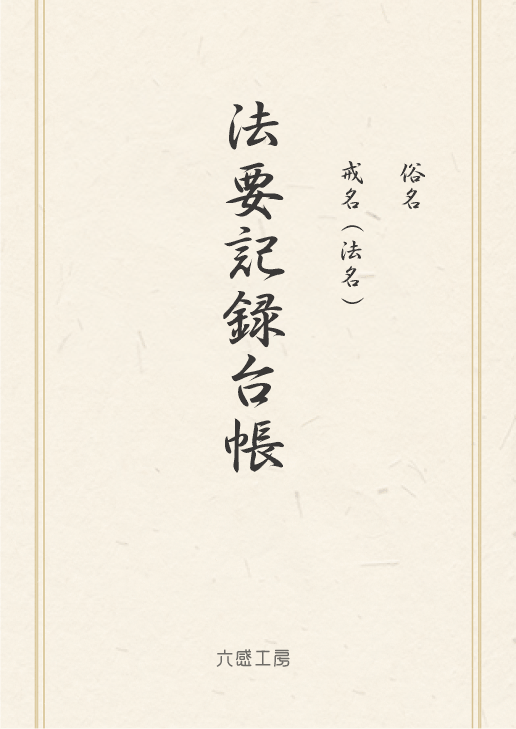 俗名
戒名（法名）
法要記録台帳
六感工房